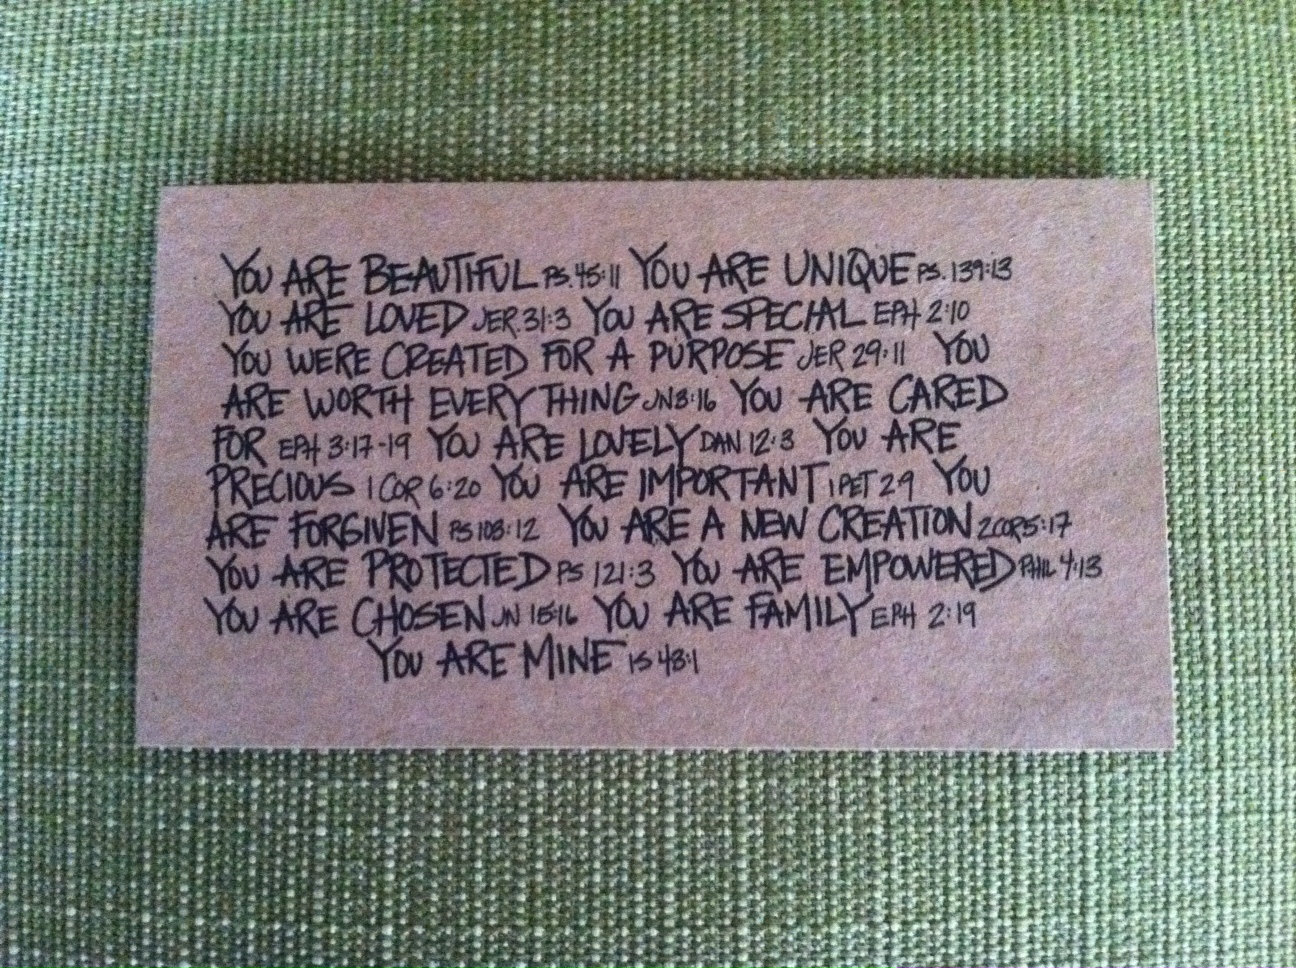 YOU ARE BEAUTIFUL PS. 45:11 YOU ARE UNIQUE PS. 139:13
YOU ARE LOVED JER. 31:3 YOU ARE SPECIAL EPH 2:10
YOU WERE CREATED FOR A PURPOSE JER 29:11 YOU
ARE WORTH EVERYTHING JN 3:16 YOU ARE CARED
FOR EPH 3:17-19 YOU ARE LOVELY DAN 12:3 YOU ARE
PRECIOUS 1 COR 6:20 YOU ARE IMPORTANT 1 PET 2:9 YOU
ARE FORGIVEN PS 103:12 YOU ARE A NEW CREATION 2 COR 5:17
YOU ARE PROTECTED PS 121:3 YOU ARE EMPOWERED PHIL 4:13
YOU ARE CHOSEN JN 15:16 YOU ARE FAMILY EPH 2:19
YOU ARE MINE IS 43:1